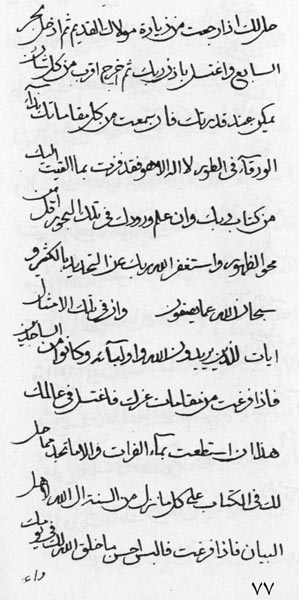 حل لك اذا رجعت من زيارة مولاك القديم ثم ادخل
السابع واغتسل باذن ربك ثم خرج اقرب من كل شان
يمكن عند قدس ربك فان سمعت من كل مقاماتك نداء
الورقاء فى الطور لا اله الا هو فقد فزت بما القيت اليك
من كتاب ربك وان علم ورودك فى تلك البحور
محو الظهور واستغفر الله ربك عن التحديد بالكثر و
سبحان الله عما يصفون وان فى تلك الاشارات
ايات للذين يريدون الله واوليائه وكانوا من الساجدين
فاذا فرغت من مقامات عزك فاغتسل فى عالمك
هذا ان استطعت بماء الفرات والا ما تجد مما حل
لك فى الكتاب على كل ما نزل من السنة ال الله اهل
البيان فاذا فرغت فالبس احسن ما خلق الله لك فى
وراء
٧٧